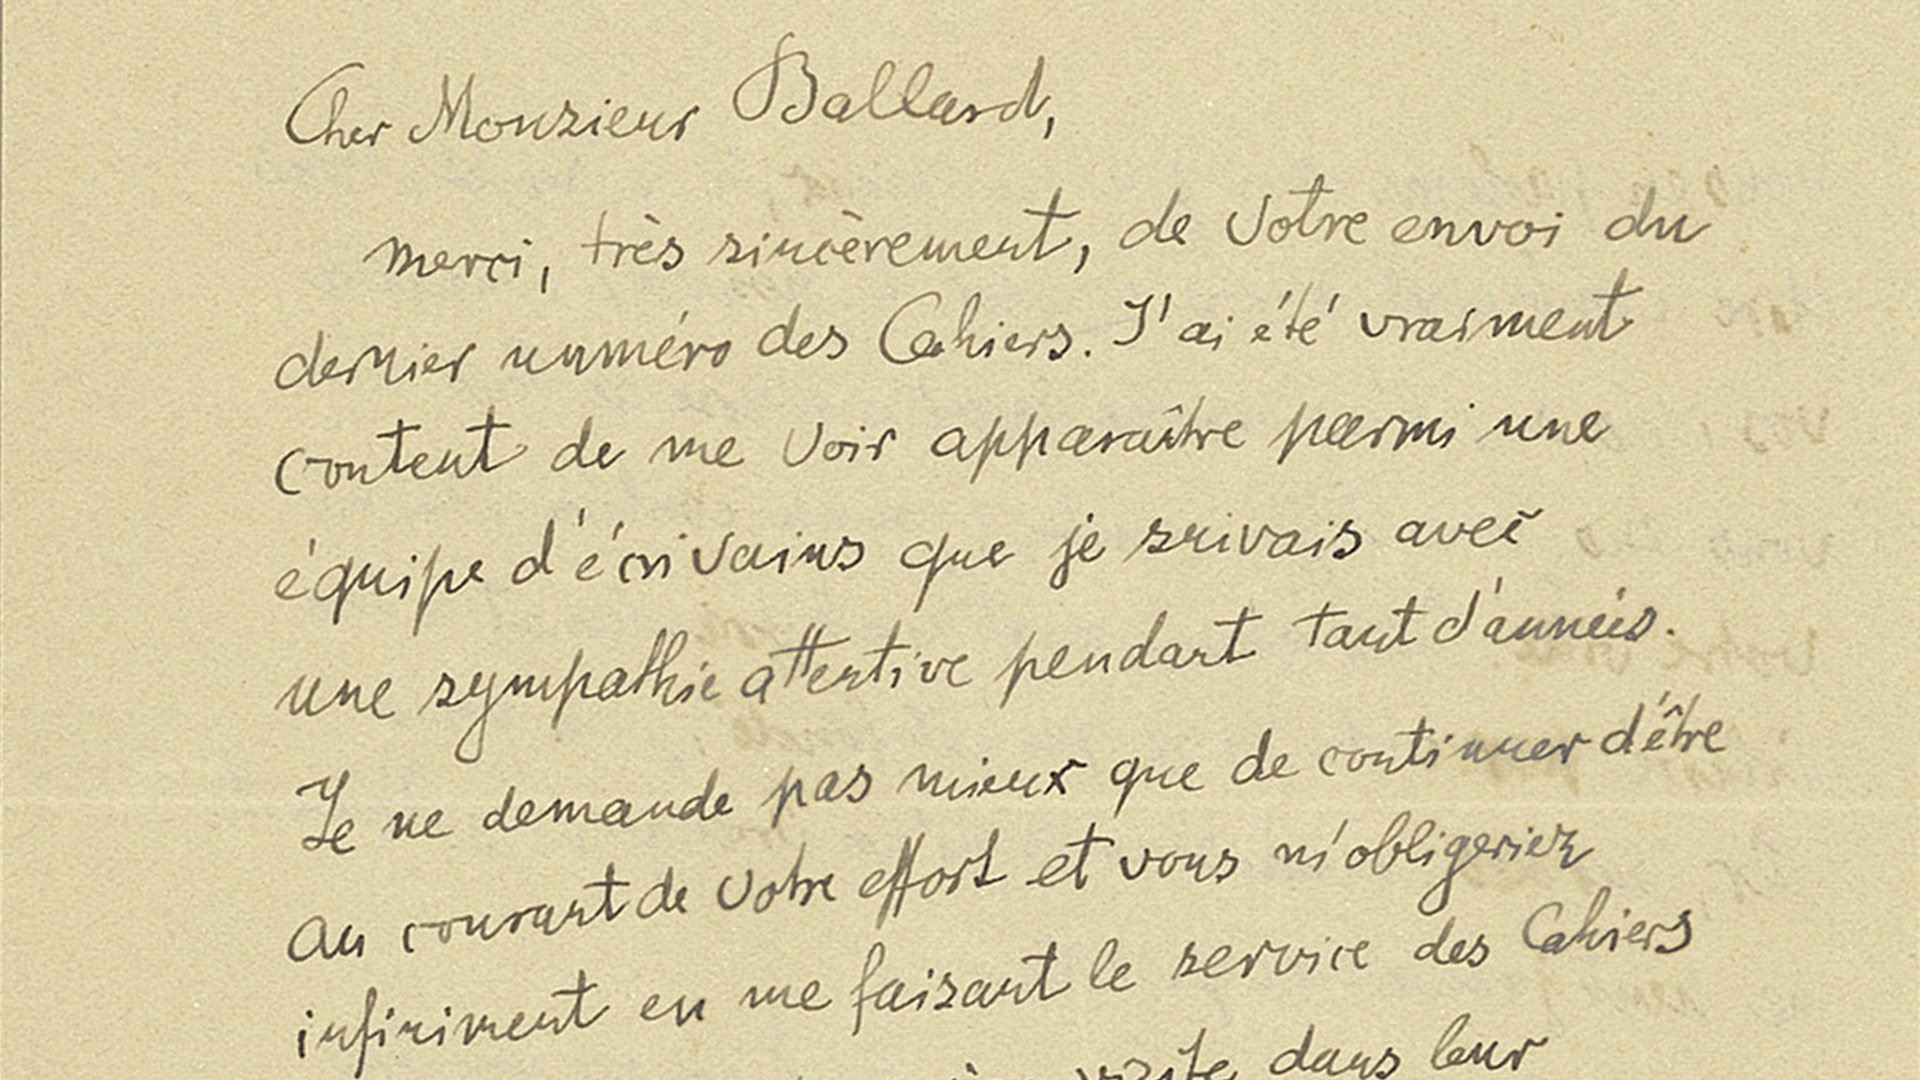 Cher Monsieur Ballard,
merci, très sincèrement, de votre envoi du
dernier numéro des Cahiers. J'ai été vraiment
content de me voir apparaître parmi une
équipe d'écrivains que je suivais avec
une sympathie attentive pendant tant d'années.
Je ne demande pas mieux que de continuer d'être
au courant de votre effort et vous m'obligeriez
infiniment en me faisant le service des Cahiers
dans leur